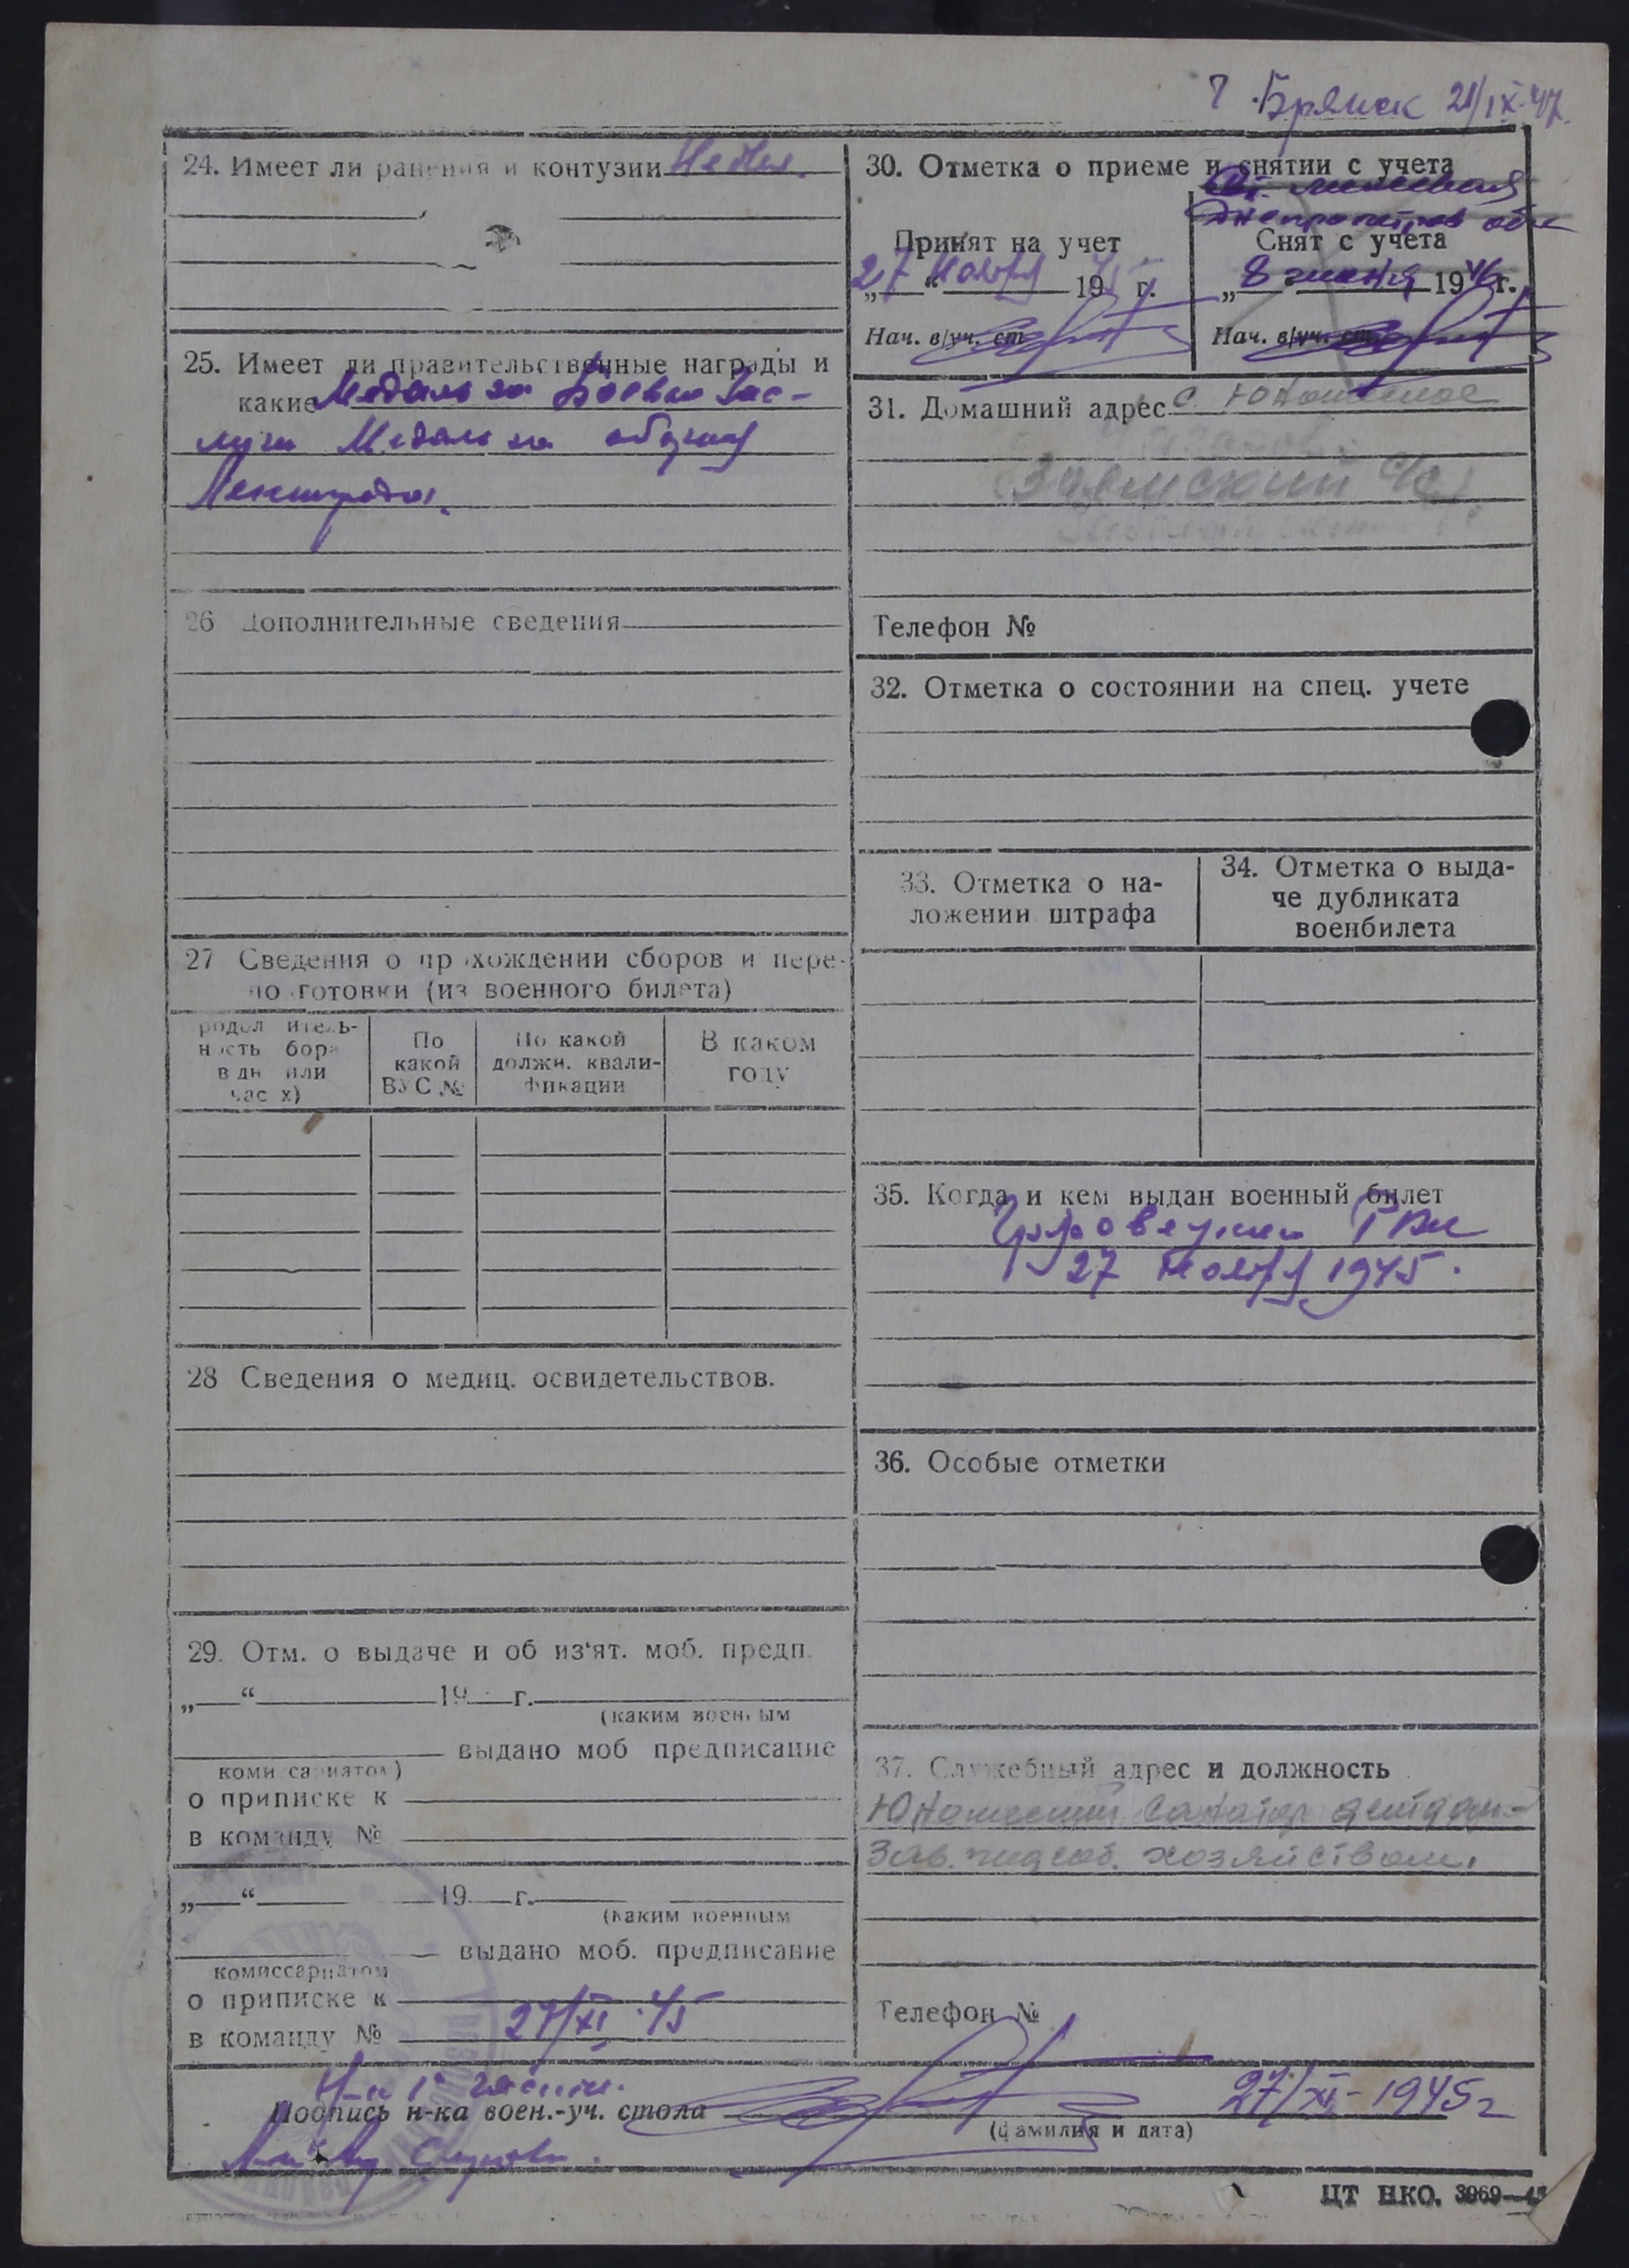 г. Брянск 21/IX-47.
24. Имеет ли ранения и контузии Не имел.
25. Имеет ли правительственные награды и
какие Медаль за Боевые Зас-
луги Медаль за оборону
Ленинграда.
26 Дополнительные сведения
27 Сведения о прохождении сборов и пере-
подготовки (из военного билета)
Продолжитель-
ность сбора
в дн или
часах)
По
какой
ВУС №
По какой
должн. квали-
фикации
В каком
году
28 Сведения о медиц. освидетельствов.
29. Отм. о выдаче и об из'ят. моб. предп.
„ “ 19 г.
(каким военным
выдано моб предписание
комиссариатом)
о приписке к
в команду №
„ “ 19 г.
(каким военным
выдано моб. предписание
комиссариатом
о приписке к
в команду № 27/XI-45
30. Отметка о приеме и снятии с учета
Днепропетров обл
Принят на учет
27 ноября 1945 г.
Нач. в/уч. ст
Снят с учета
„8 1946 г.
Нач. в/уч. ст.
31. Домашний адрес с. Юношеское
Заемский с/с
Телефон №
32. Отметка о состоянии на спец. учете
33. Отметка о на-
ложении штрафа
34. Отметка о выда-
че дубликата
военбилета
35. Когда и кем выдан военный билет
РВК
27 ноября 1945.
36. Особые отметки
37. Служебный адрес и должность
Юношеский санатор детдом-
Зав. подсоб. хозяйством.
Телефон №
Н-к 1й части.
Подпись н-ка воен.-уч. стола 27/XI-1945г
(фамилия и дата)
ЦТ НКО. 3969—45